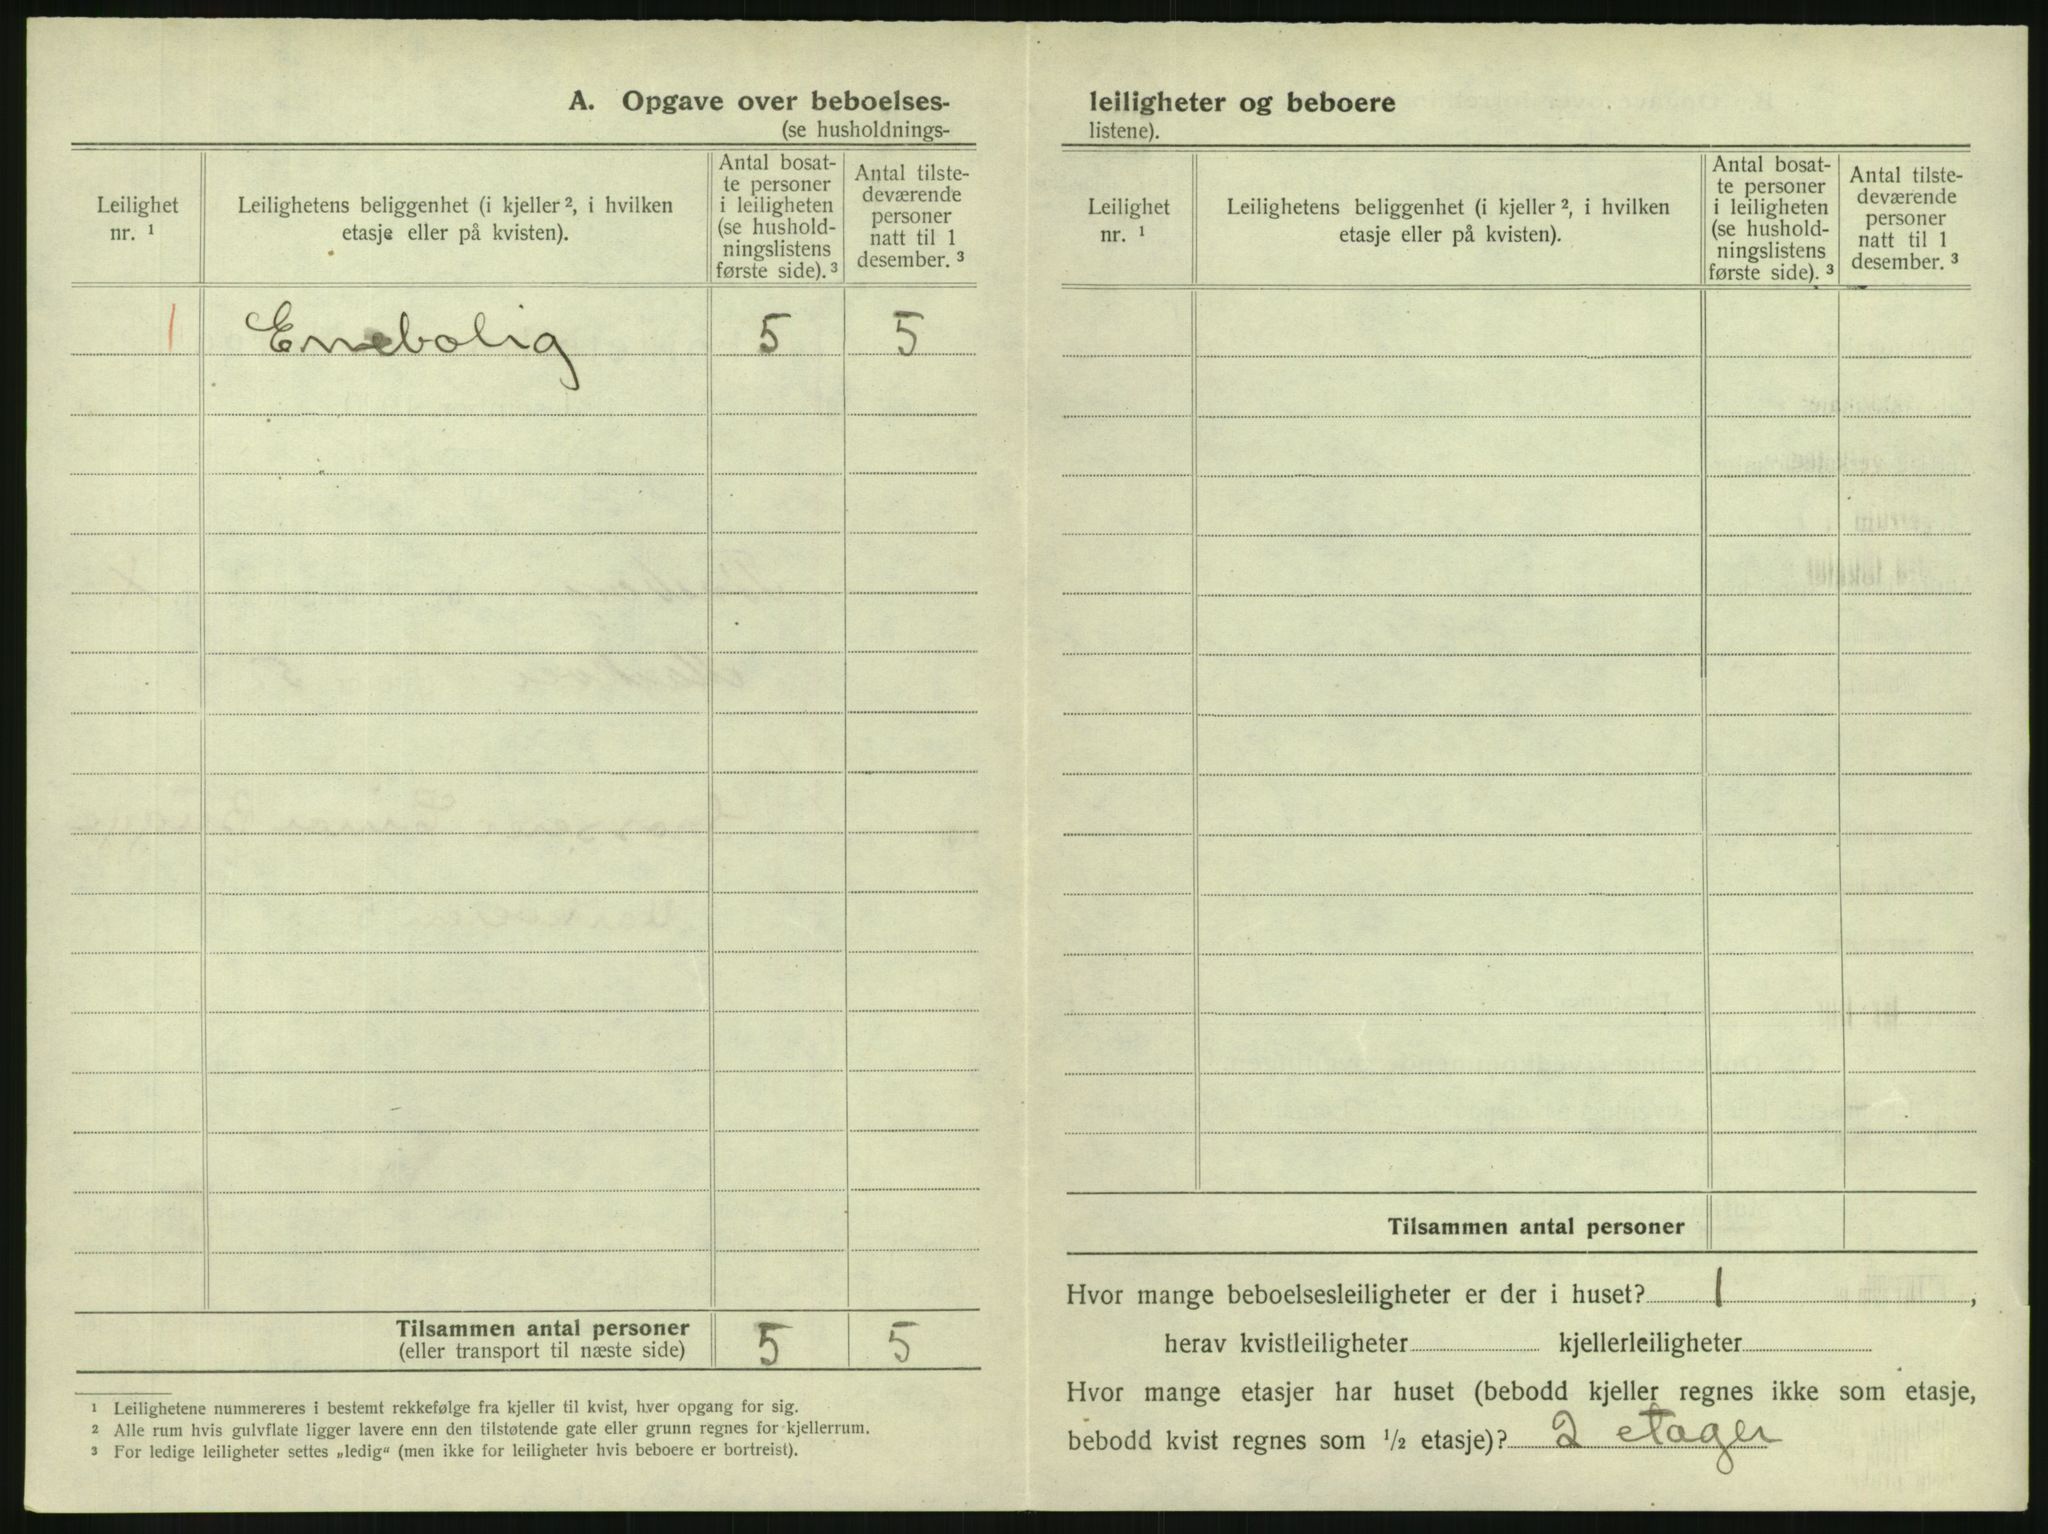 A. Opgave over beboelses-
(se husholdnings-
Leilighet
nr. 1
Leilighetens beliggenhet (i kjeller 2, i hvilken
etasje eller på kvisten).
Antal bosat-
te personer
i leiligheten
(se hushold-
ningslistens
første side). 3
Antal tilste-
deværende
personer
natt til 1
desember. 3
1 Enebolig 5 5
Tilsammen antal personer 5 5
(eller transport til næste side)
1 Leilighetene nummereres i bestemt rekkefølge fra kjeller til kvist, hver opgang for sig.
2 Alle rum hvis gulvflate ligger lavere enn den tilstøtende gate eller grunn regnes for kjellerrum.
3 For ledige leiligheter settes „ledig“ (men ikke for leiligheter hvis beboere er bortreist).
leiligheter og beboere
listene).
Leilighet
nr. 1
Leilighetens beliggenhet (i kjeller 2, i hvilken
etasje eller på kvisten).
Antal bosat-
te personer
i leiligheten
(se hushold-
ningslistens
første side). 3
Antal tilste-
deværende
personer
natt til 1
desember. 3
Tilsammen antal personer
Hvor mange beboelsesleiligheter er der i huset? 1,
herav kvistleiligheter kjellerleiligheter
Hvor mange etasjer har huset (bebodd kjeller regnes ikke som etasje,
bebodd kvist regnes som 1/2 etasje)? 2 etager